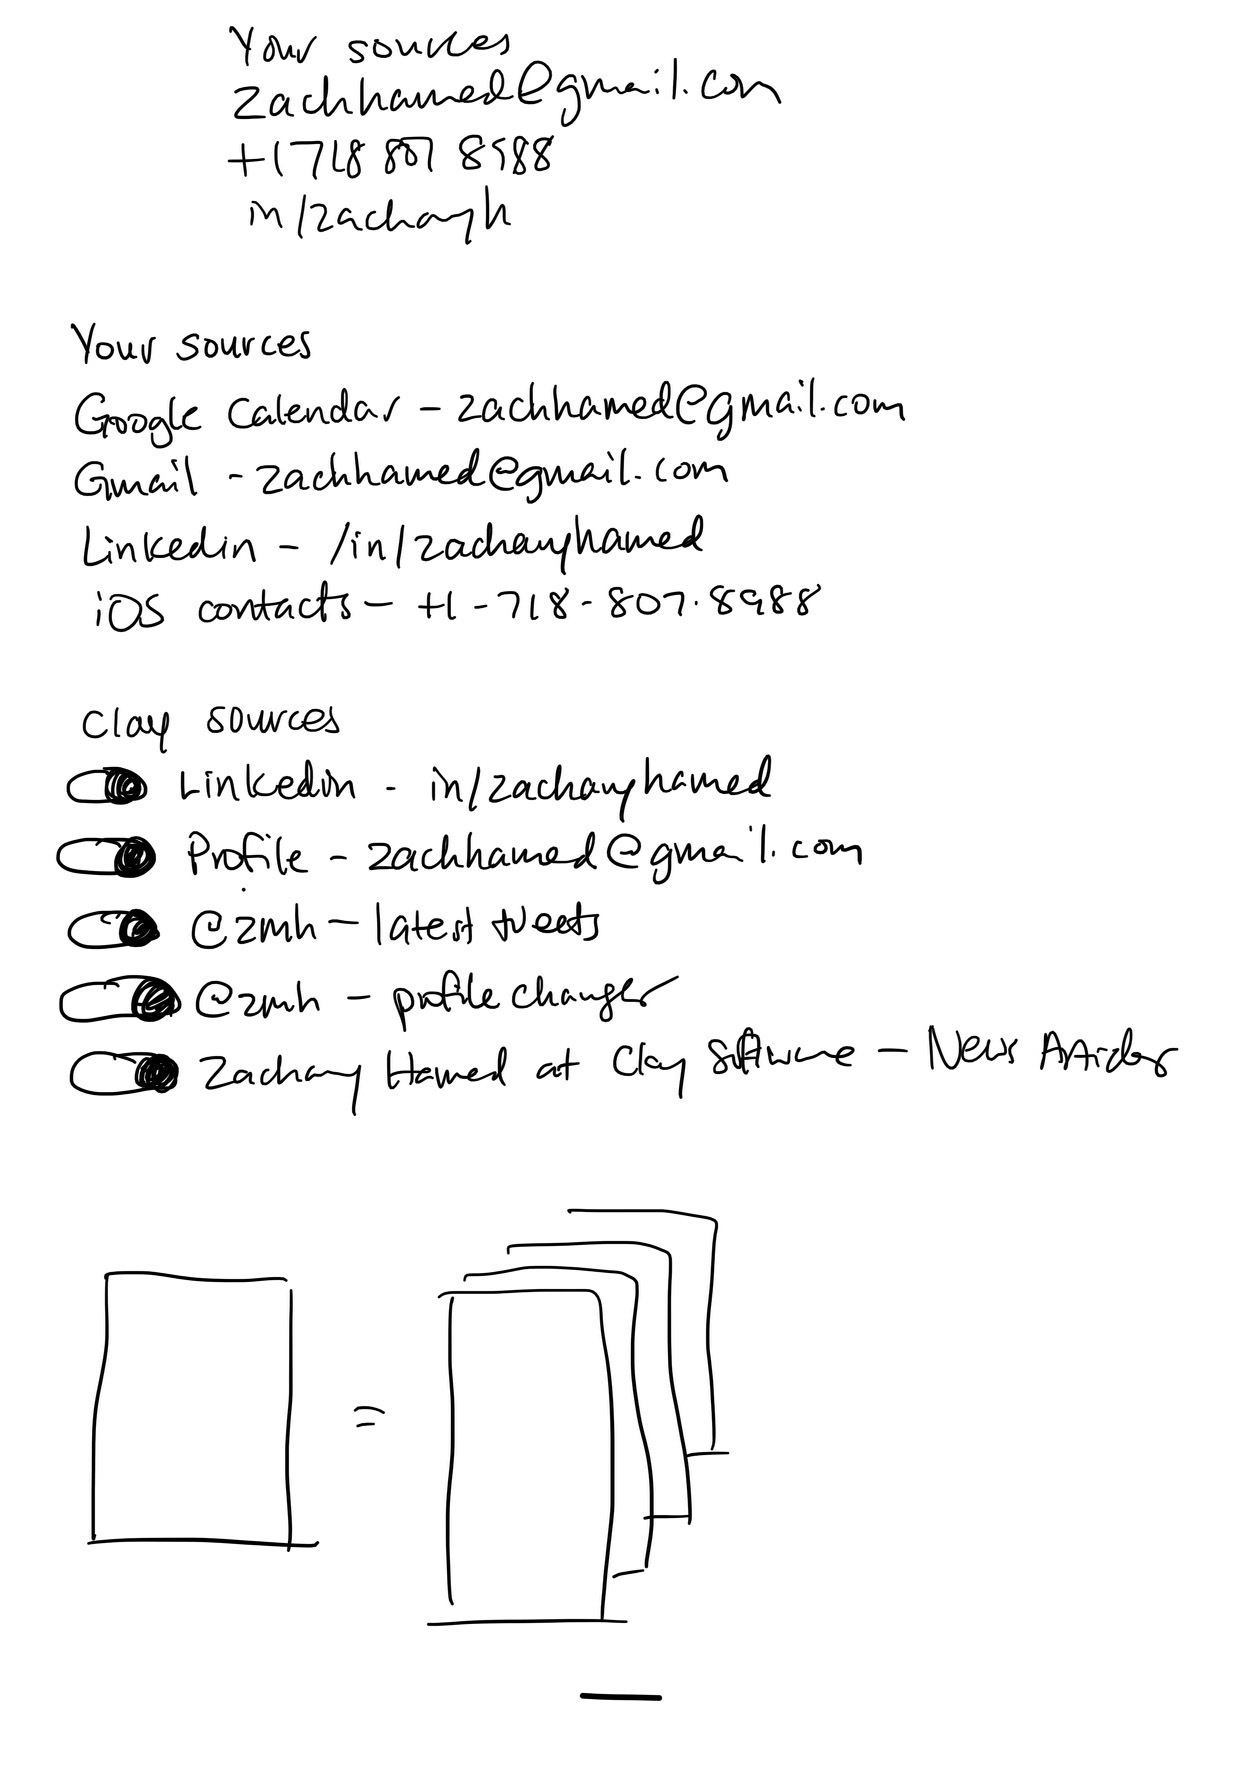 Your sources
zachhamed@gmail.com
+1 718 807 8988
in/zacharyh
Your sources
Google Calendar - zachhamed@gmail.com
Gmail - zachhamed@gmail.com
Linkedin - /in/zacharyhamed
iOS contacts - +1-718-807.8988
Clay sources
Linkedin - in/zacharyhamed
Profile - zachhamed@gmail.com
@zmh - latest tweets
@zmh - profile changes
Zachary Hamed at Clay Software - News Articles
=